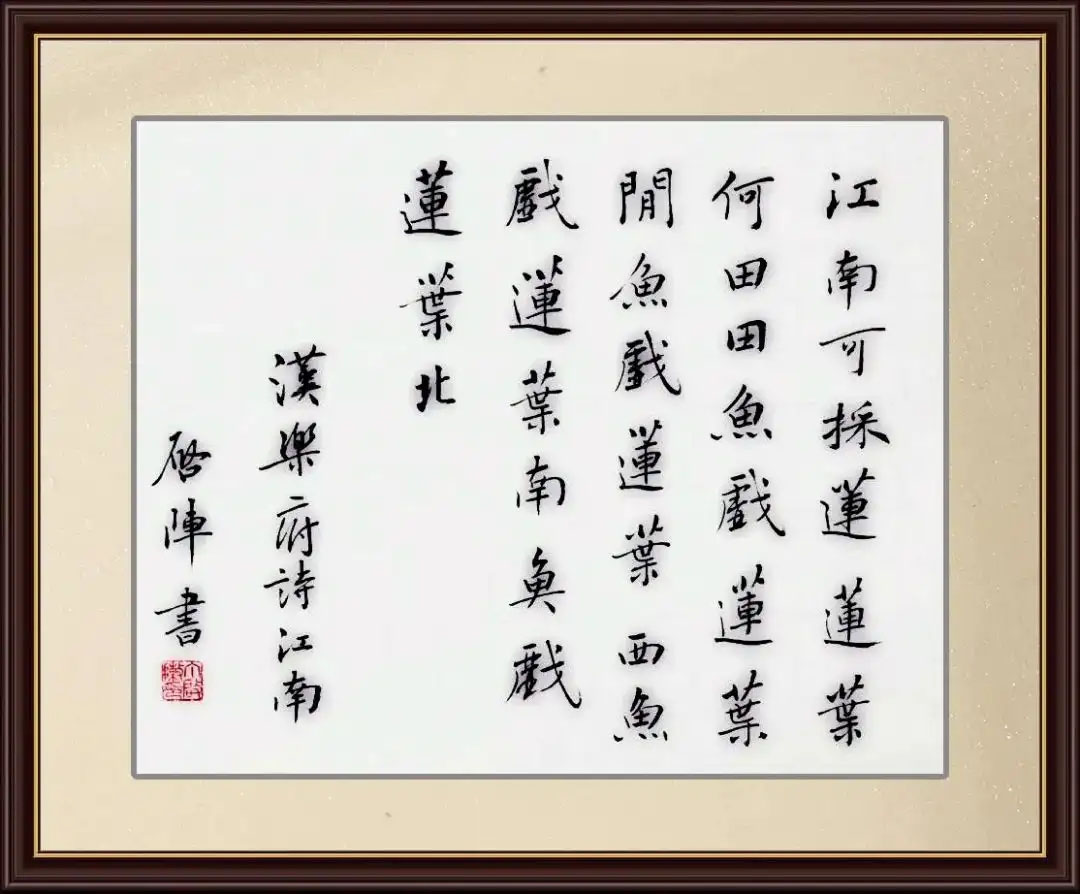 江南可採蓮蓮葉
何田田魚戲蓮葉
間魚戲蓮葉西魚
戲蓮葉南魚戲
蓮葉北
漢樂府詩江南
啓陣書